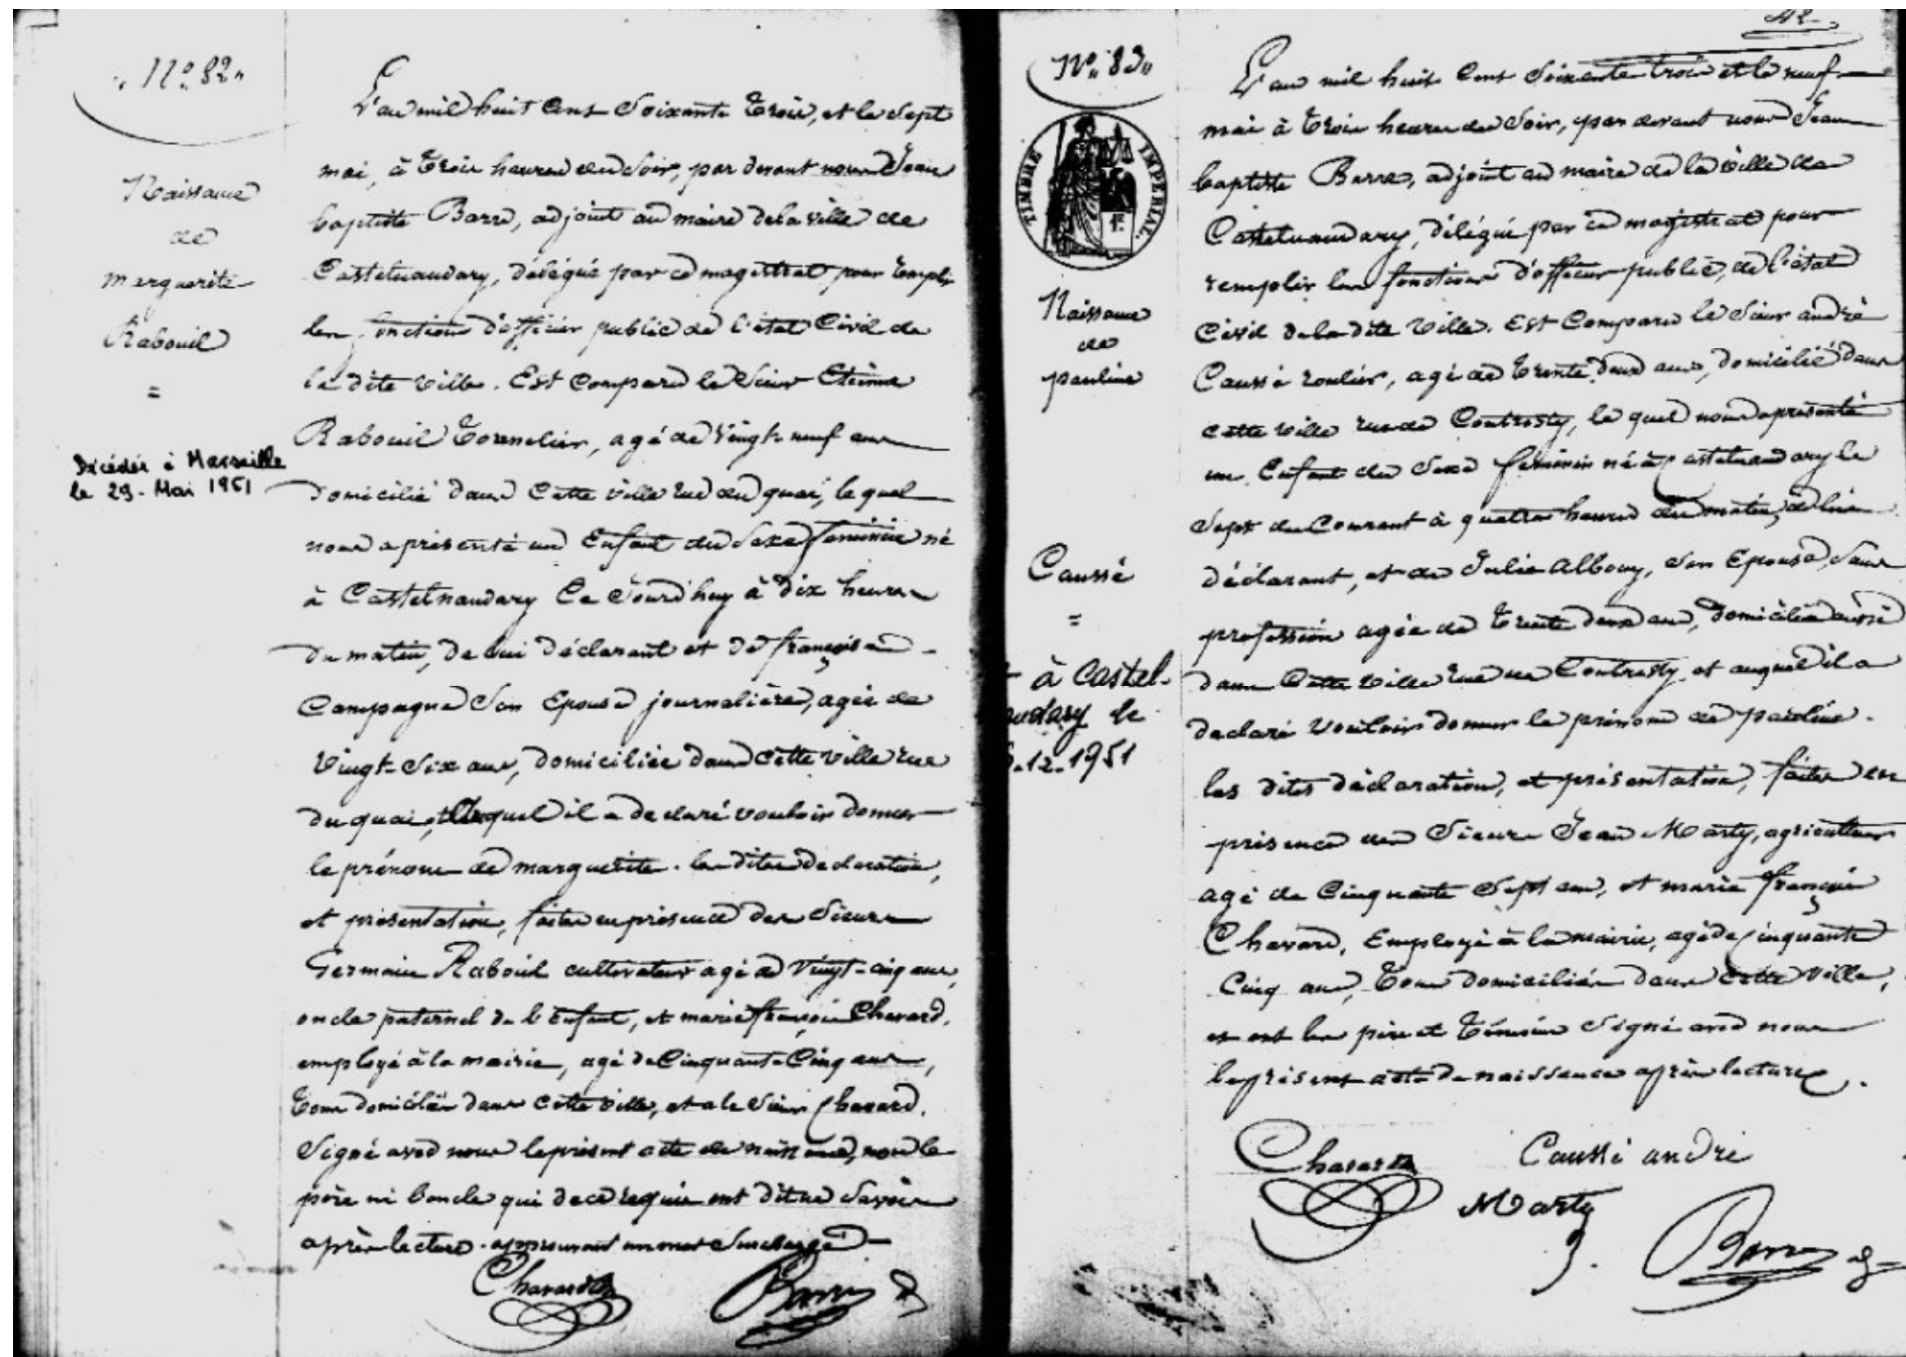 N° 82
Naissance
de
marguerite
Rabouil
=
Décédée à Marseille
le 29 - Mai 1951
L'an mil huit Cent Soixante trois, et le Sept
mai, à trois heures du Soir, par devant nous Jean
baptiste Barre, adjoint au maire de la ville de
Castelnaudary, délégué par ce magistrat pour remplir
les fonctions d'officier public de l'état Civil de
la dite ville. Est Comparu le Sieur Etienne
Rabouil tonnelier, agé de vingt-neuf ans
domicilié dans Cette ville rue du quai, le quel
nous a présenté un Enfant du Sexe feminin né
à Castelnaudary Ce Jourd'huy à dix heures
du matin, de lui déclarant et de françoise
Campagne Son Epouse journalière, agée de
vingt-Six ans, domiciliée dans cette ville rue
du quai, et quel il a declaré vouloir donner
le prénom de marguerite. les dites declaration,
et présentation, faites en présence des Sieurs
Germain Rabouil cultivateur agé de vingt-cinq ans,
oncle paternel de l'Enfant, et marie françois Chavard,
employé à la mairie, agé de Cinquante Cinq ans,
tous domiciliés dans cette ville, et a le Sieur Chavard,
Signé avec nous le présent acte de naissance, non le
père ni l'oncle qui de ce requis ont dit ne Savoir
après lecture. approuvant un mot Surchargé
Chavard
Barre
42
N° 83
TIMBRE IMPERIAL
Naissance
de
pauline
Caussé
=
à Castel-
naudary le
.12.1951
L'an mil huit Cent Soixante trois et le neuf
mai à trois heures du Soir, par devant nous Jean
baptiste Barre, adjoint au maire de la ville de
Castelnaudary, délégué par ce magistrat pour
remplir les fonctions d'officier public, de l'état
Civil de la dite ville. Est Comparu le Sieur andré
Caussé roulier, agé de trente deux ans, domicilié dans
cette ville rue de Contresty, le quel nous a présenté
un Enfant du Sexe féminin né à Castelnaudary le
Sept du Courant à quatre heures du matin, de lui
déclarant, et de Julie Albouy, Son Epouse, Sans
profession agée de trente deux ans, domiciliée aussi
dans Cette ville rue de Contresty, et auquel il a
declaré vouloir donner le prénom de pauline.
les dites déclaration, et présentation, faites en
présence des Sieurs Jean Marty, agriculteur
agé de Cinquante Sept ans, et marie françois
Chavard, Employé à la mairie, agé de Cinquante
Cinq ans, tous domiciliés dans cette ville,
et ont les père et témoins Signé avec nous
le présent acte de naissance après lecture.
Chavard
Caussé andré
Marty
Barre